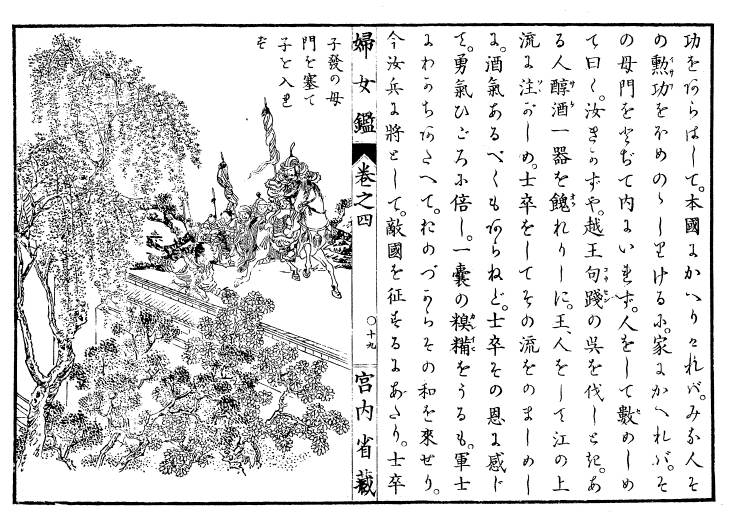 功をあらはして。本國にかへりければ。みな人そ
の勲功をほめのゝしりけるに。家にかへれば。そ
の母門をとぢて内にいれず。人をして數めしめ
て曰く。汝きかずや。越王句踐の呉を伐しとき。あ
る人醇酒一器を餽れりしに。王、人をして江の上
流に注がしめ。士卒をしてその流をのましめし
に。酒氣あるべくもあらねど。士卒その恩に感じ
て。勇氣ひごろに倍し。一嚢の糗糒をうるも。軍士
にわかちあたへて。おのづからその和を來せり。
今汝兵に將として。敵國を征するにあたり。士卒
婦女鑑 卷之四 〇十九 宮内省藏
子發の母
門を塞て
子を入れ
ず